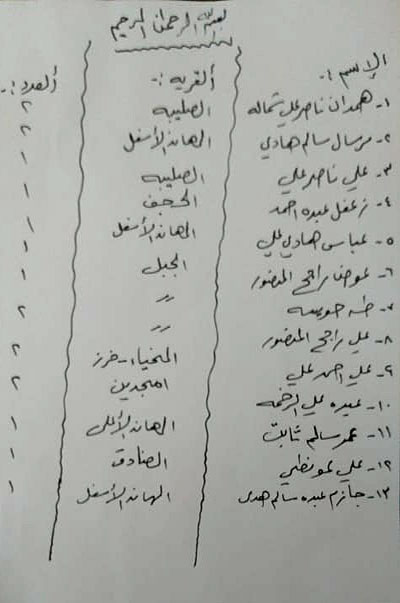 بسم الله الرحمن الرحيم
الإسم :- القريه :- العدد :-
١- همدان ناصر علي شماله الصليبه ٢
٢- مرسال سالم هادي الهان الأسفل ٢
٣- علي ناصر علي الصليبه ١
٤- زعفل عبده احمد الحجف ١
٥- عباس هادي علي الهان الأسفل ١
٦- عوض راجح المنصور الجبل ١
٧- طه ״ ١
٨- علي راجح المنصور ״ ٢
٩- علي احمد علي المنحياء - خرز ٢
١٠- عبده علي امجدين ٢
١١- عمر سالم ثابت الهان الأعلى ١
١٢- علي الصنادق ١
١٣- حازم عبده سالم هدى الهان الأسفل ١